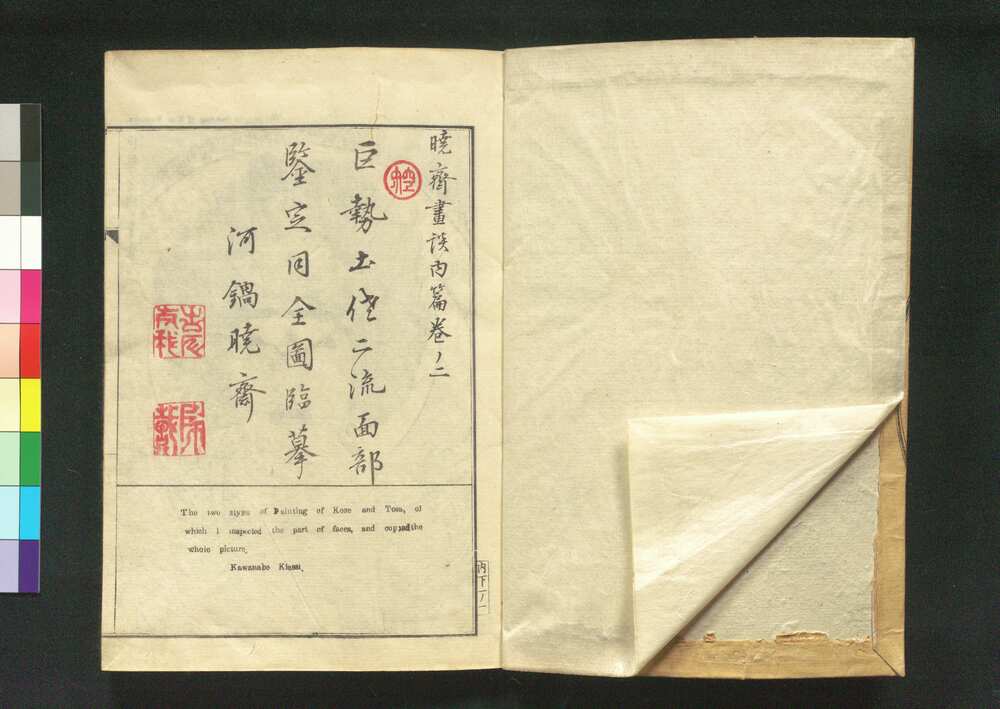 暁齋畫談内篇巻ノ二
巨勢土佐二流面部
鑒定同全圖臨摹
河鍋暁齋
The two styps of Painting of Kose and Tosa, of
which I inspected the part of faces, and copied the
whole picture.
Kawanabe Kiosai.
内下ノ一